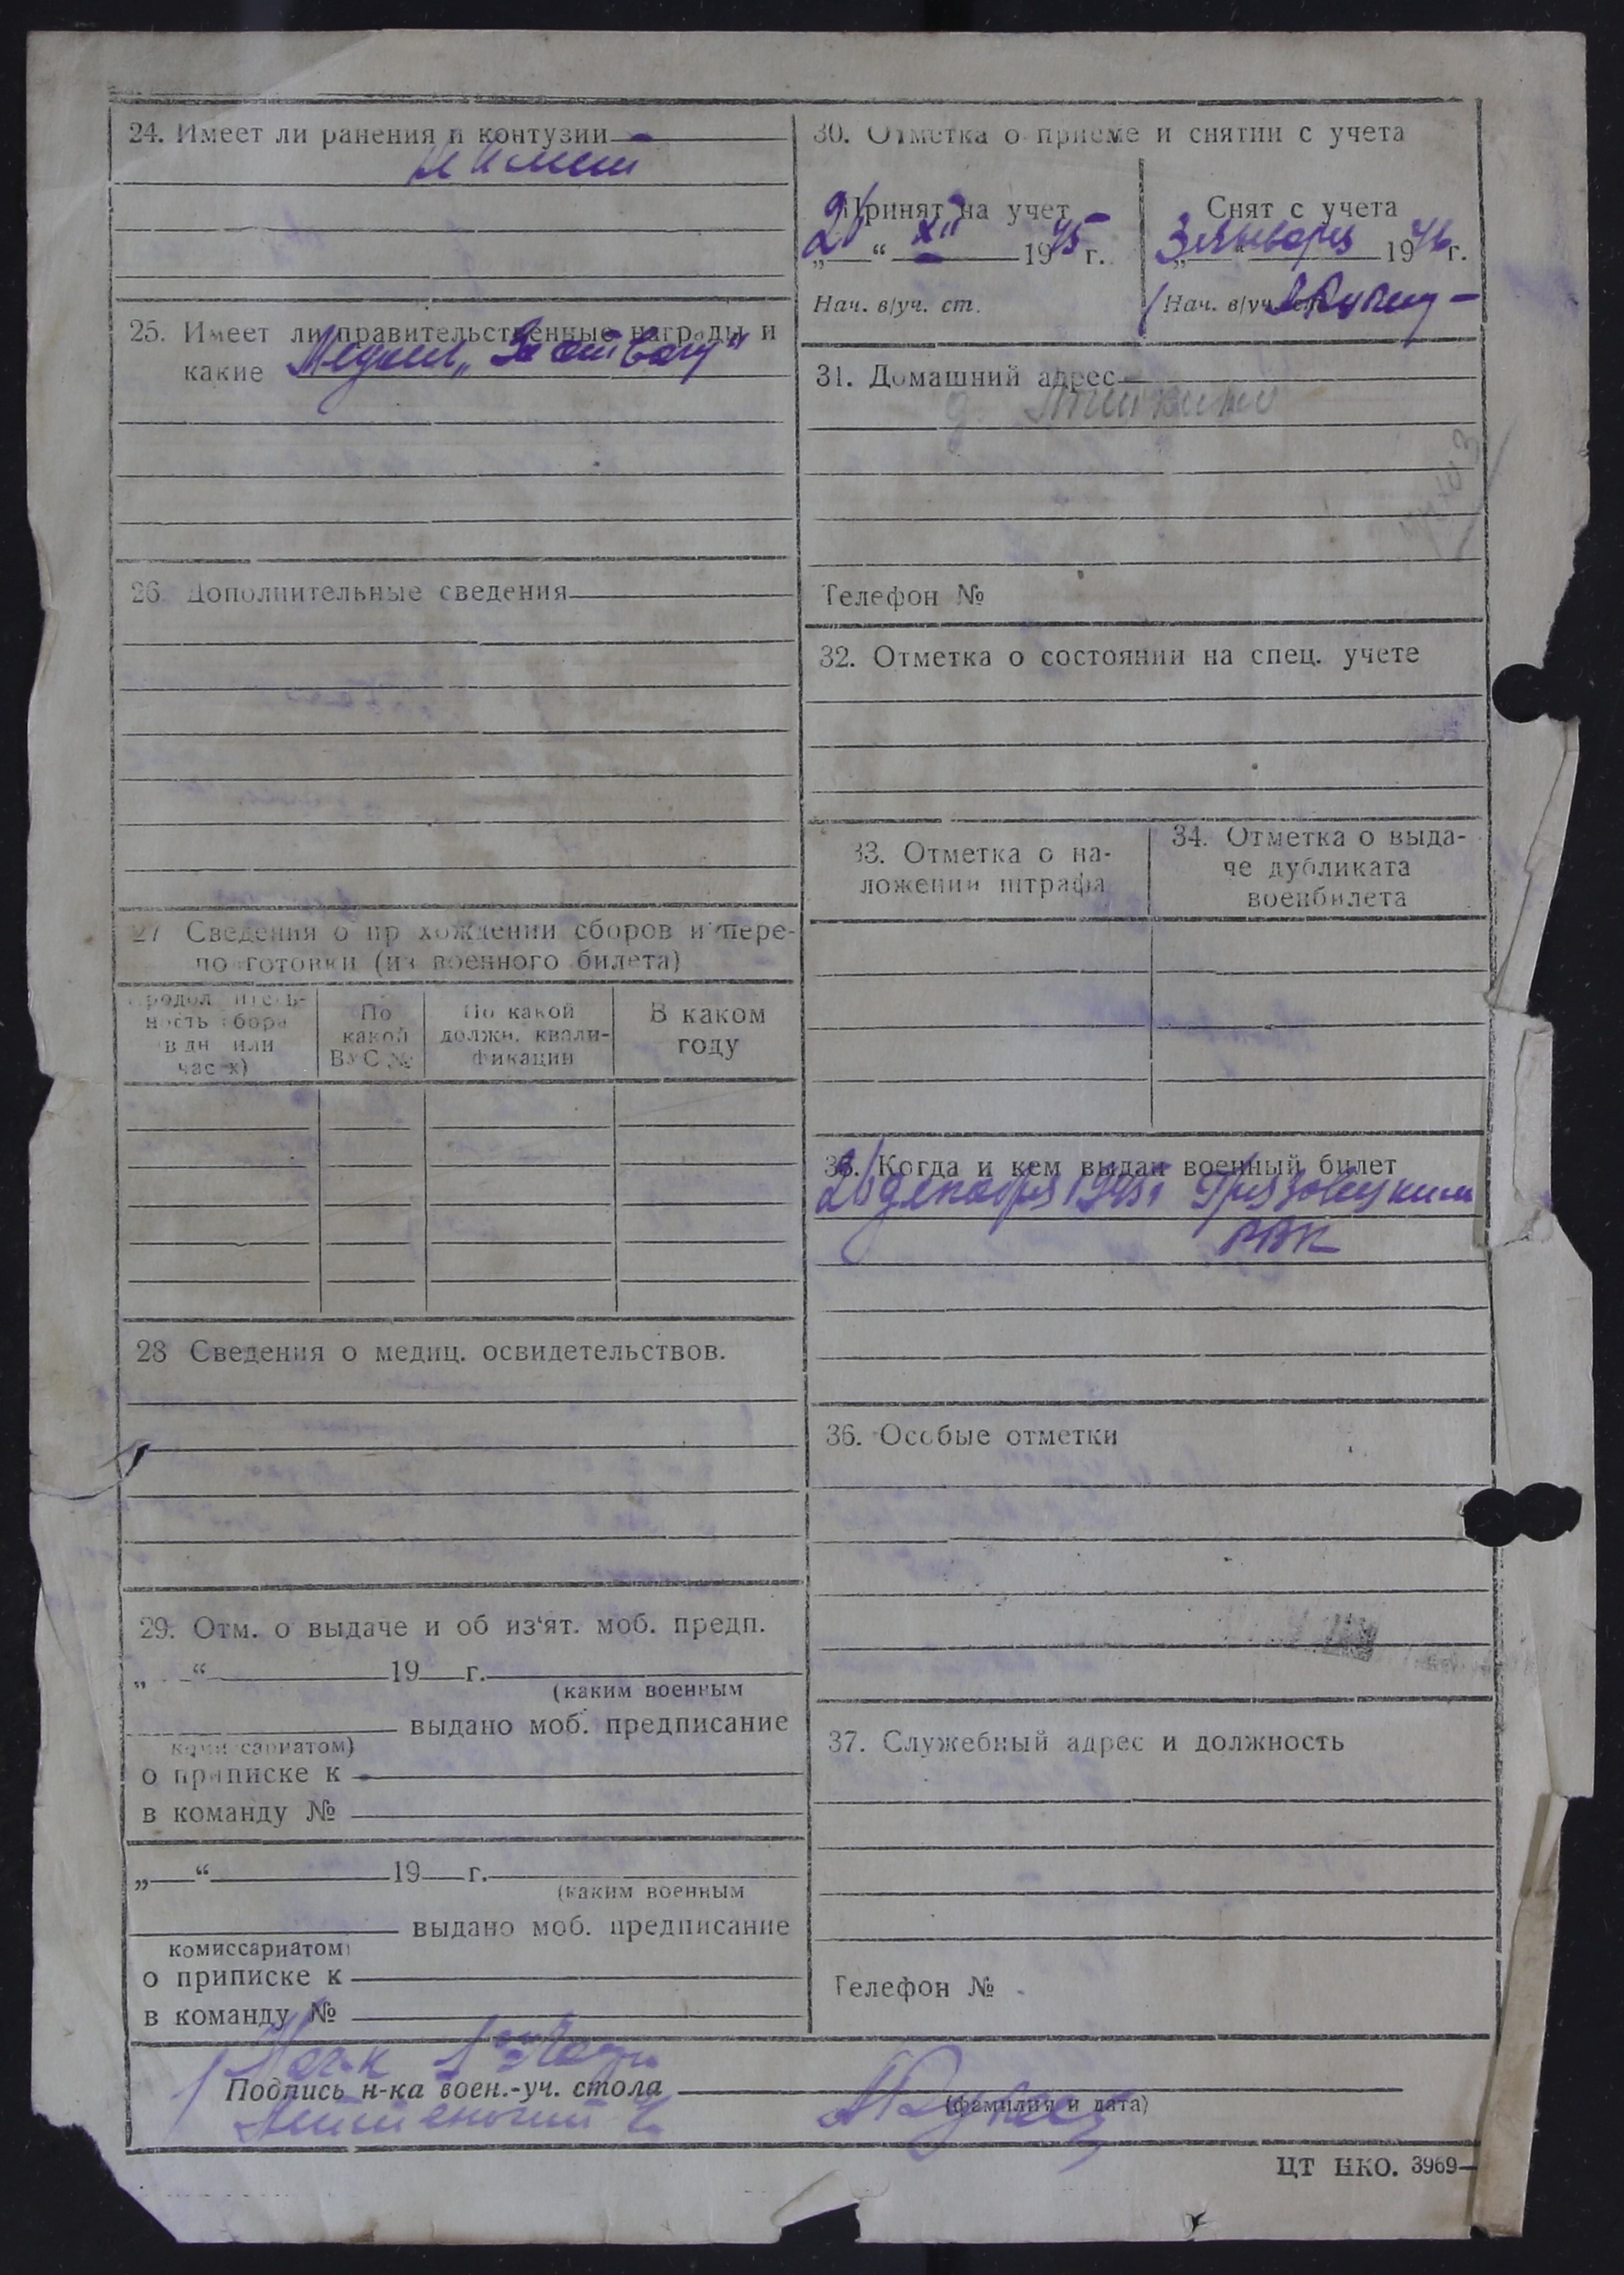 24. Имеет ли ранения и контузии
25. Имеет ли правительственные награды и
какие Медаль „За отвагу"
26. Дополнительные сведения
27 Сведения о пр хождении сборов и пере-
по готовки (из военного билета)
По какой ВУС №
По какой должн. квали-фикации
В каком году
28 Сведения о медиц. освидетельствов.
29. Отм. о выдаче и об из‘ят. моб. предп.
„ “ 19 г.
(каким военным
выдано моб. предписание
о приписке к
в команду №
„ “ 19 г.
(каким военным
выдано моб. предписание
комиссариатом)
о приписке к
в команду №
30. Отметка о приеме и снятии с учета
Принят на учет
26 “ XII 1945 г.
Нач. в/уч. ст.
Снят с учета
3 „ января “ 1946 г.
Нач. в/уч. ст.
31. Домашний адрес
д.
Телефон №
32. Отметка о состоянии на спец. учете
33. Отметка о на-
ложении штрафа
34. Отметка о выда-
че дубликата
военбилета
35. Когда и кем выдан военный билет
26 декабря 1945 г Грязовецким
РВК
36. Особые отметки
37. Служебный адрес и должность
Телефон №
Подпись н-ка воен.-уч. стола
(фамилия и дата)
ЦТ НКО. 3969—